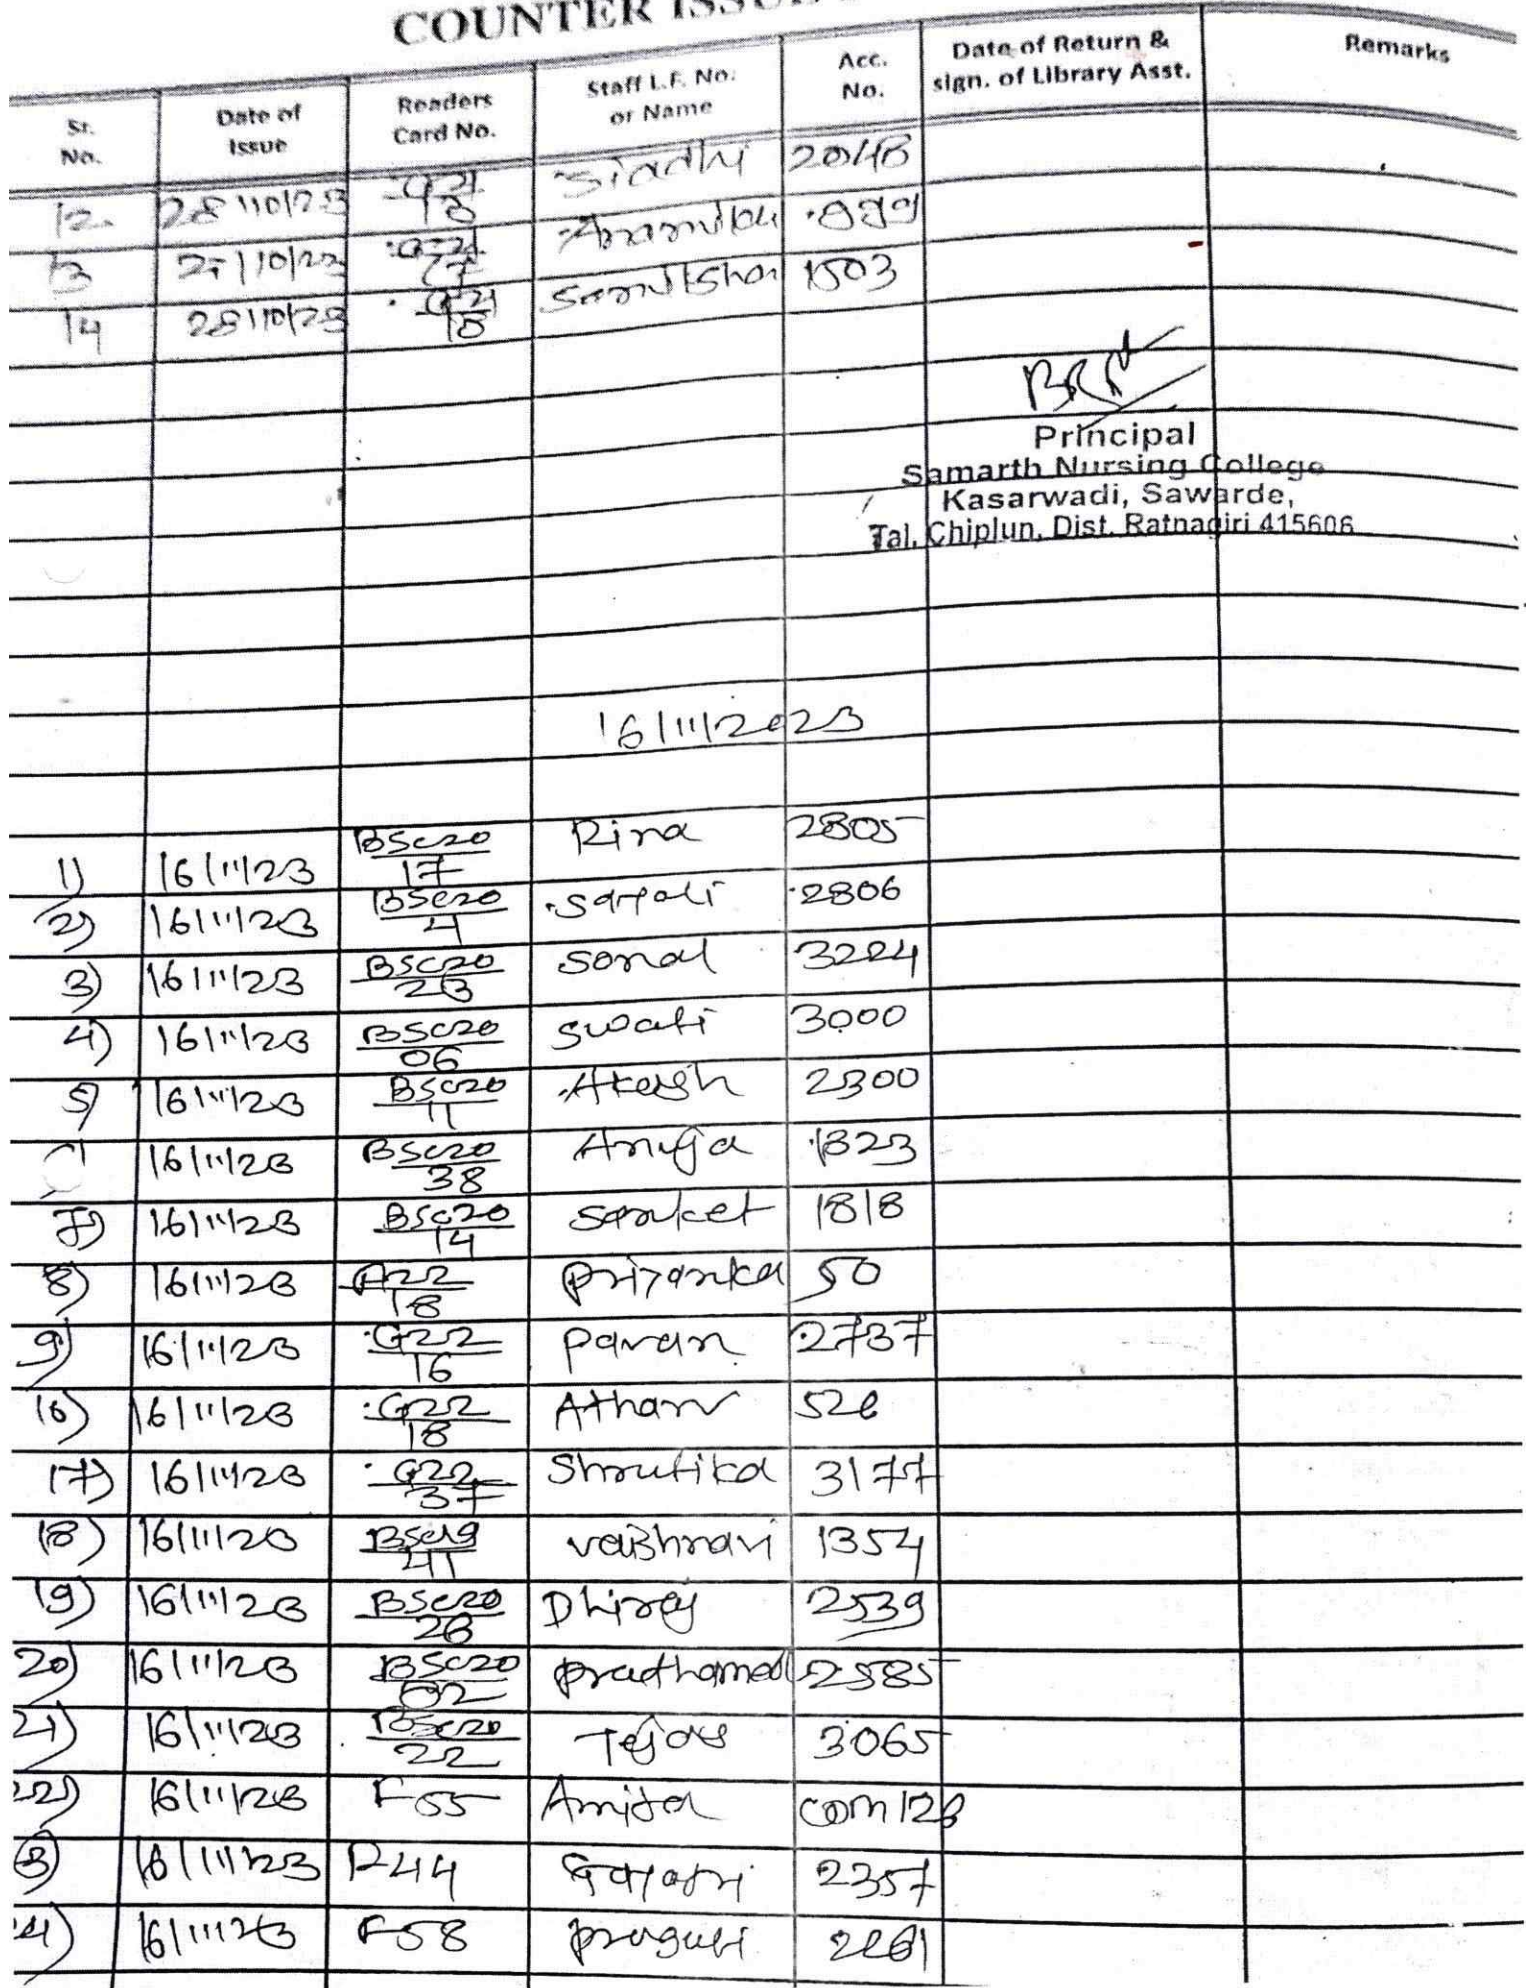 COUNTER ISSUE
Sr. No. Date of Issue Readers Card No. Staff L.F. No. or Name Acc. No. Date of Return & sign. of Library Asst. Remarks
12. 28/10/23 18 Siddhi
13 27/10/23 17
14 28/10/23 18 1503
Principal
Samarth Nursing College
Kasarwadi, Sawarde,
Tal. Chiplun, Dist. Ratnagiri 415606
16/11/2023
1) 16/11/23 BSC20/17 Rina 2805
2) 16/11/23 BSC20/4 Sayali 2806
3) 16/11/23 BSC20/23 Sonal 3224
4) 16/11/23 BSC20/06 Swati 3000
5) 16/11/23 BSC20/11 Akash 2300
16/11/23 BSC20/38 Anuja 1823
7) 16/11/23 BSC20/14 Sanket 1818
8) 16/11/23 A22/18 Priyanka 50
9) 16/11/23 G22/16 Pavan 2737
16) 16/11/23 G22/18 Atharv
17) 16/11/23 G22/37 Shrutika 3177
18) 16/11/23 BSC19/41 Vaishnavi 1354
19) 16/11/23 BSC20/28 Dhiraj 2539
20) 16/11/23 BSC20/02 2585
21) 16/11/23 BSC20/22 Tejas 3065
22) 16/11/23 F55 Amita com 123
3) 16/11/23 F44 Gayatri 2357
4) 16/11/23 F58 Pragati